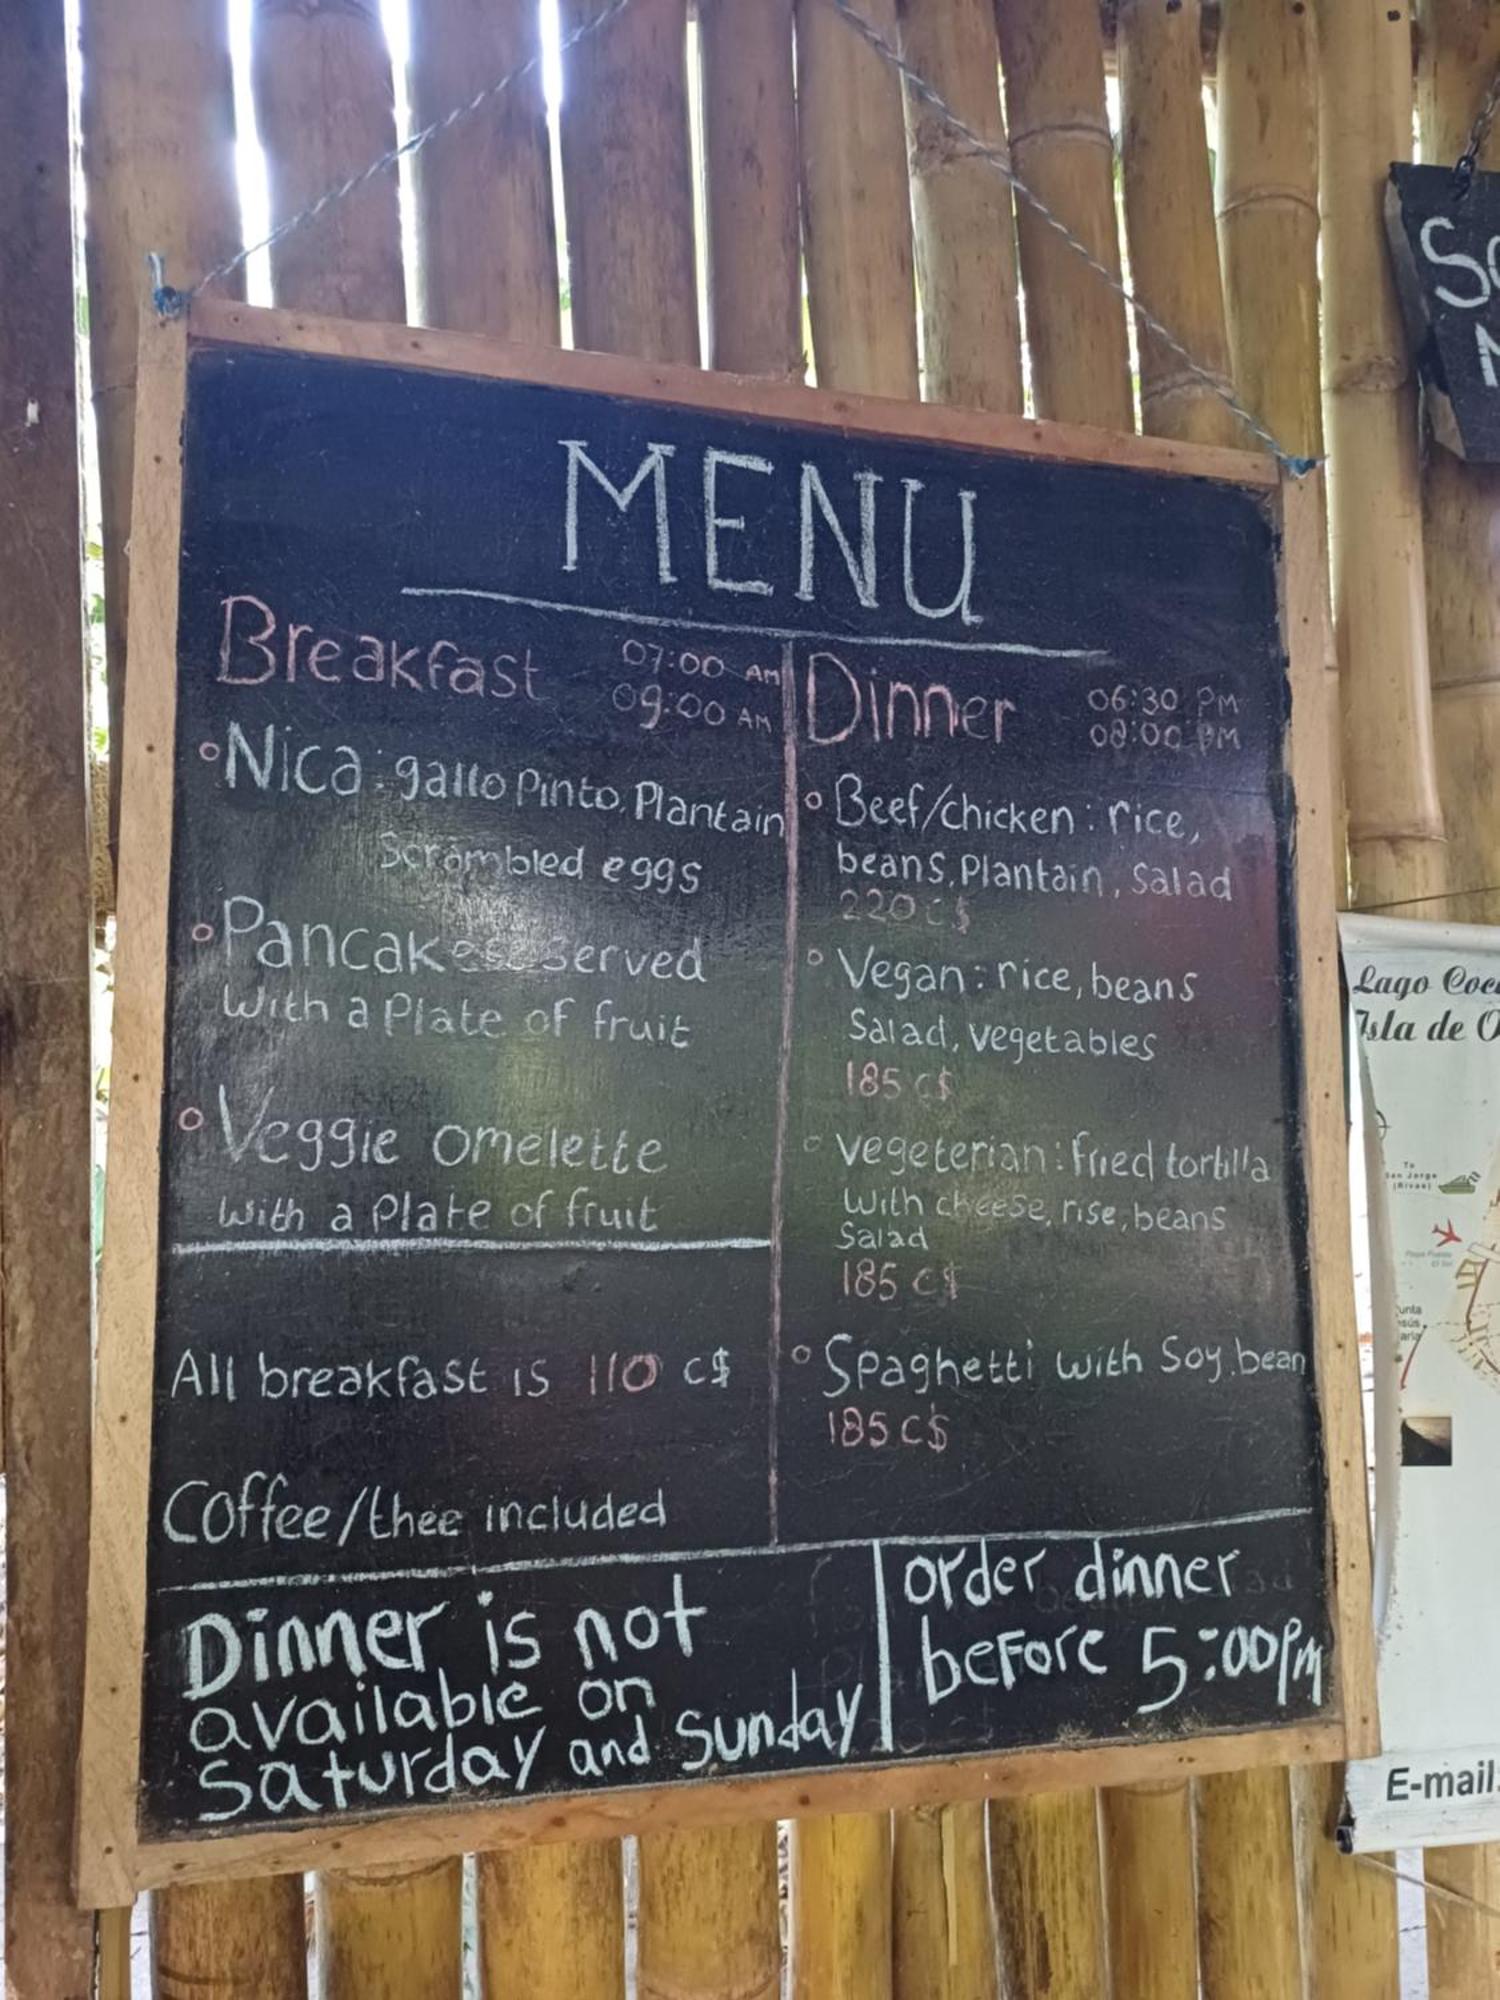 MENU
Breakfast 07:00 AM
09:00 AM
Nica: gallo Pinto, Plantain
Scrambled eggs
Pancakes served
With a Plate of fruit
Veggie omelette
With a Plate of fruit
All breakfast is 110 C$
Coffee/thee included
Dinner 06:30 PM
08:00 PM
Beef/chicken: rice,
beans, Plantain, Salad
220 C$
Vegan: rice, beans
Salad, vegetables
185 C$
Vegeterian: fried tortilla
With cheese, rise, beans
Salad
185 C$
Spaghetti with Soy.bean
185 C$
Dinner is not
available on
Saturday and Sunday
order dinner
before 5:00Pm
Lago Coci
Isla de O
To
San Jorge
(Rivas)
E-mail: